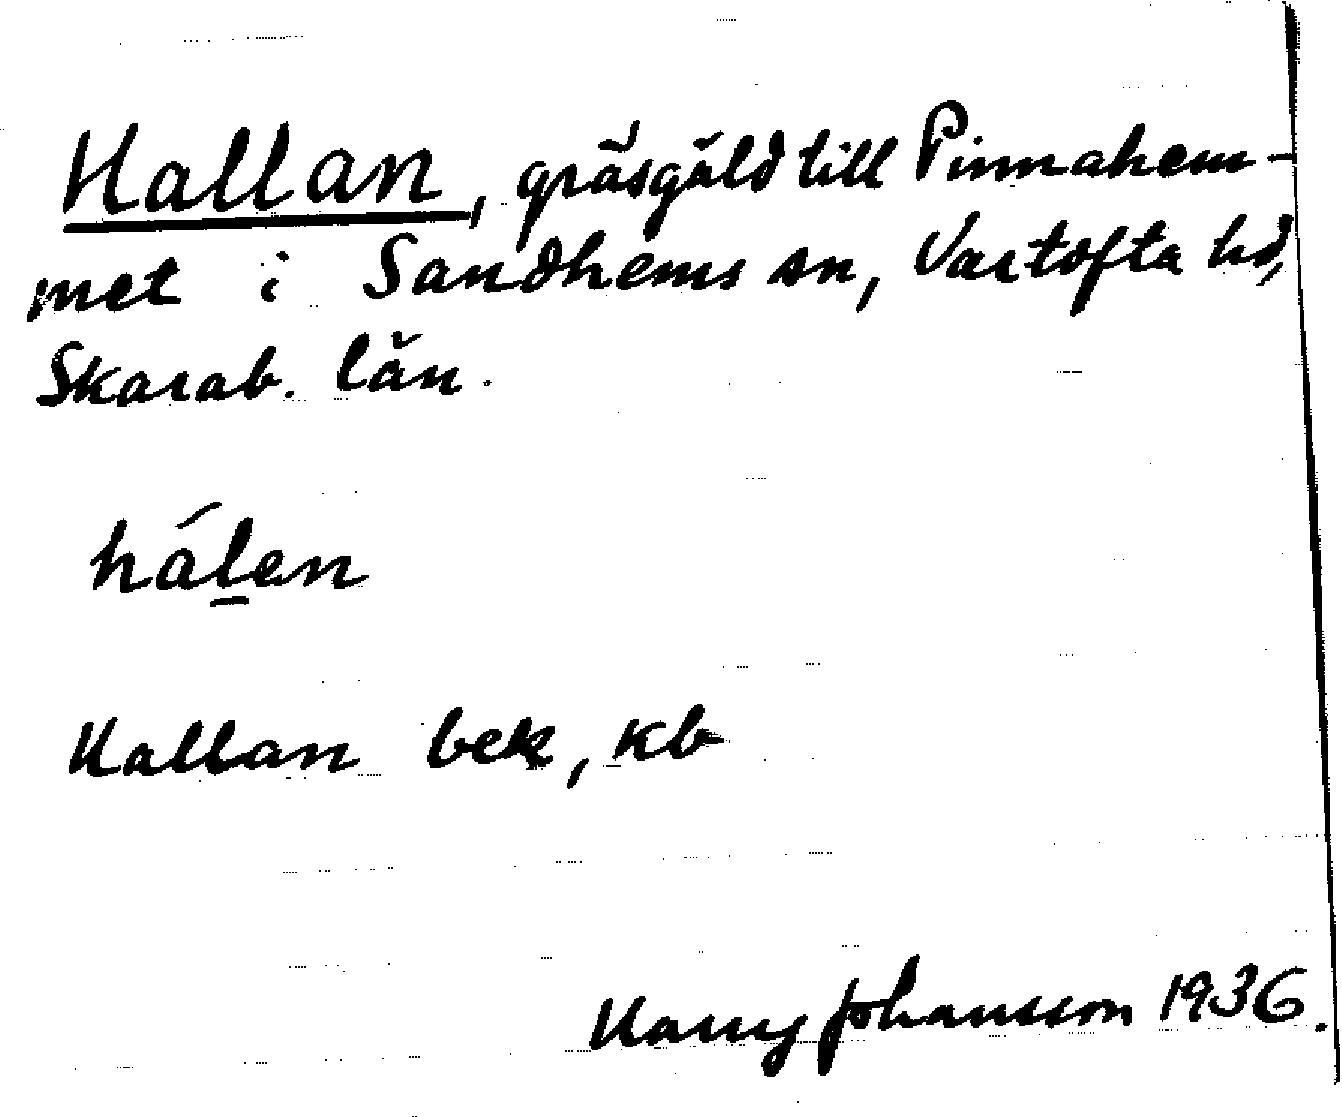 Hallan, gräsgäld till Pinnahem-
met i Sandhems sn, Vartofta hd,
Skarab. län.
hálen
Hallan bek, kb
Harry Johansson 1936.